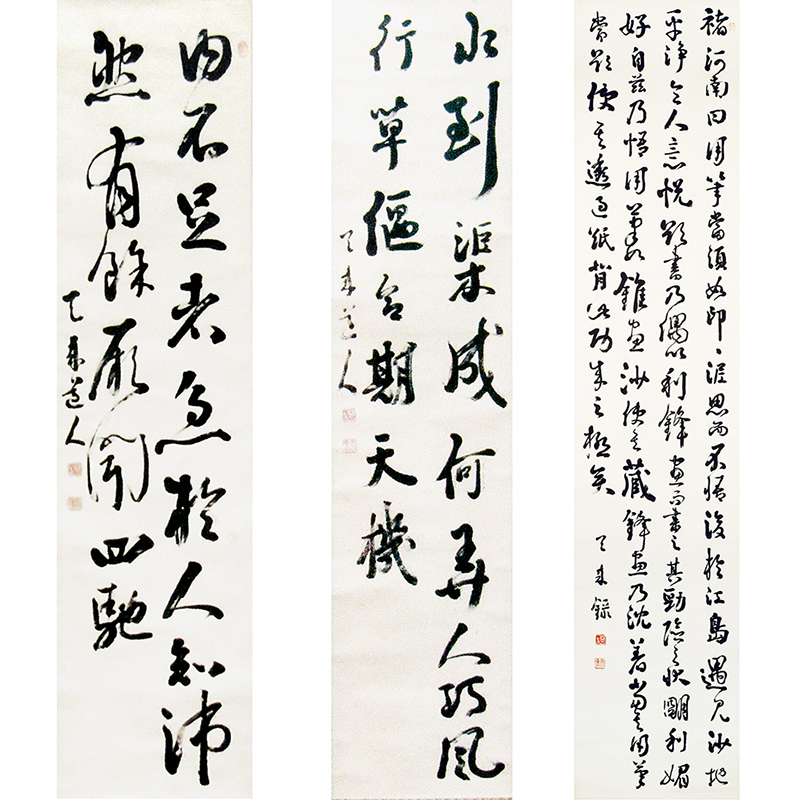 褚河南曰用筆當須如印〻泥思而不悟後於江島遇見沙地
平淨令人意悦欲書乃偶以利鋒畫而書之其勁險之状明利媚
好自茲乃悟用筆如錐畫沙使其藏鋒畫乃沈着當其用筆
常欲使其透過紙背此功成之極矣
天来録
水到渠成何弄人巧風
行草偃合期天機
天来道人
内不足者急於人知沛
然有餘厥聞四馳
天来道人